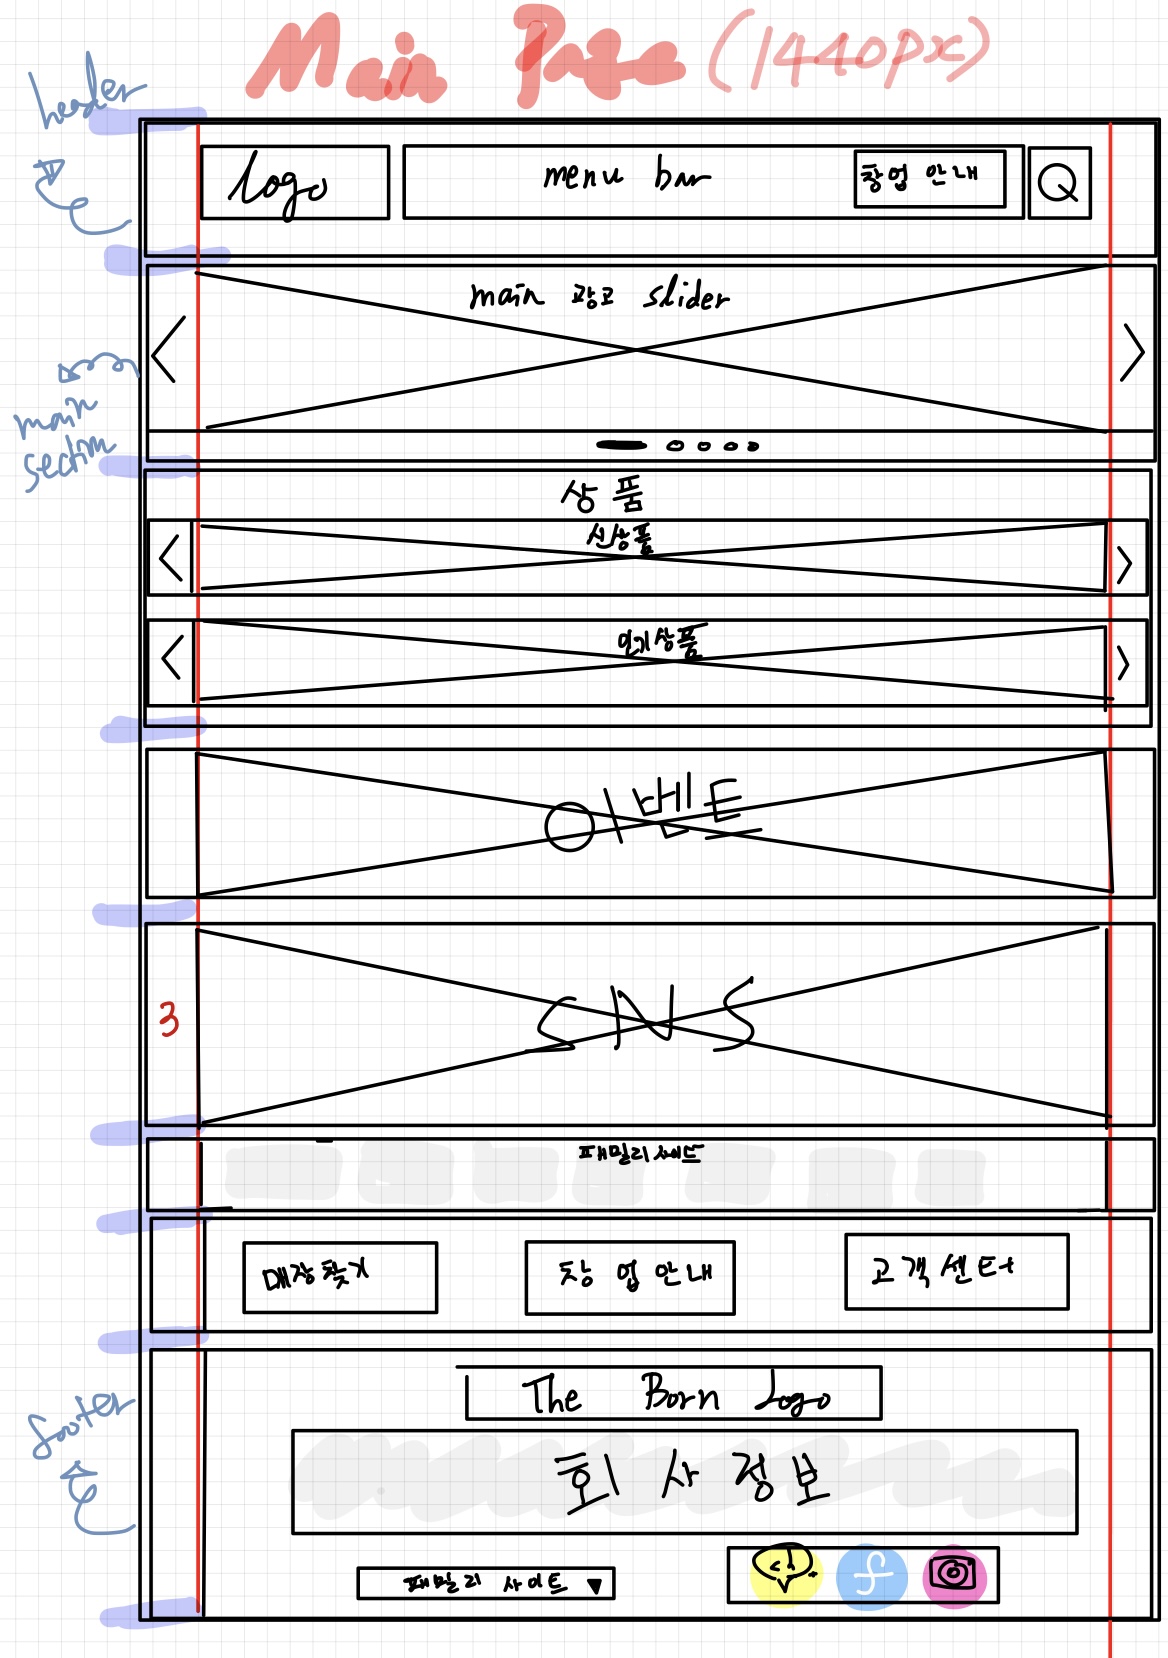 Main Page (1440px)
header
Logo
menu bar
창업 안내
main 광고 slider
main
section
상품
신상품
인기상품
이벤트
SNS
3
패밀리 사이트
매장찾기
창업안내
고객센터
footer
The Born Logo
회사정보
패밀리 사이트
f